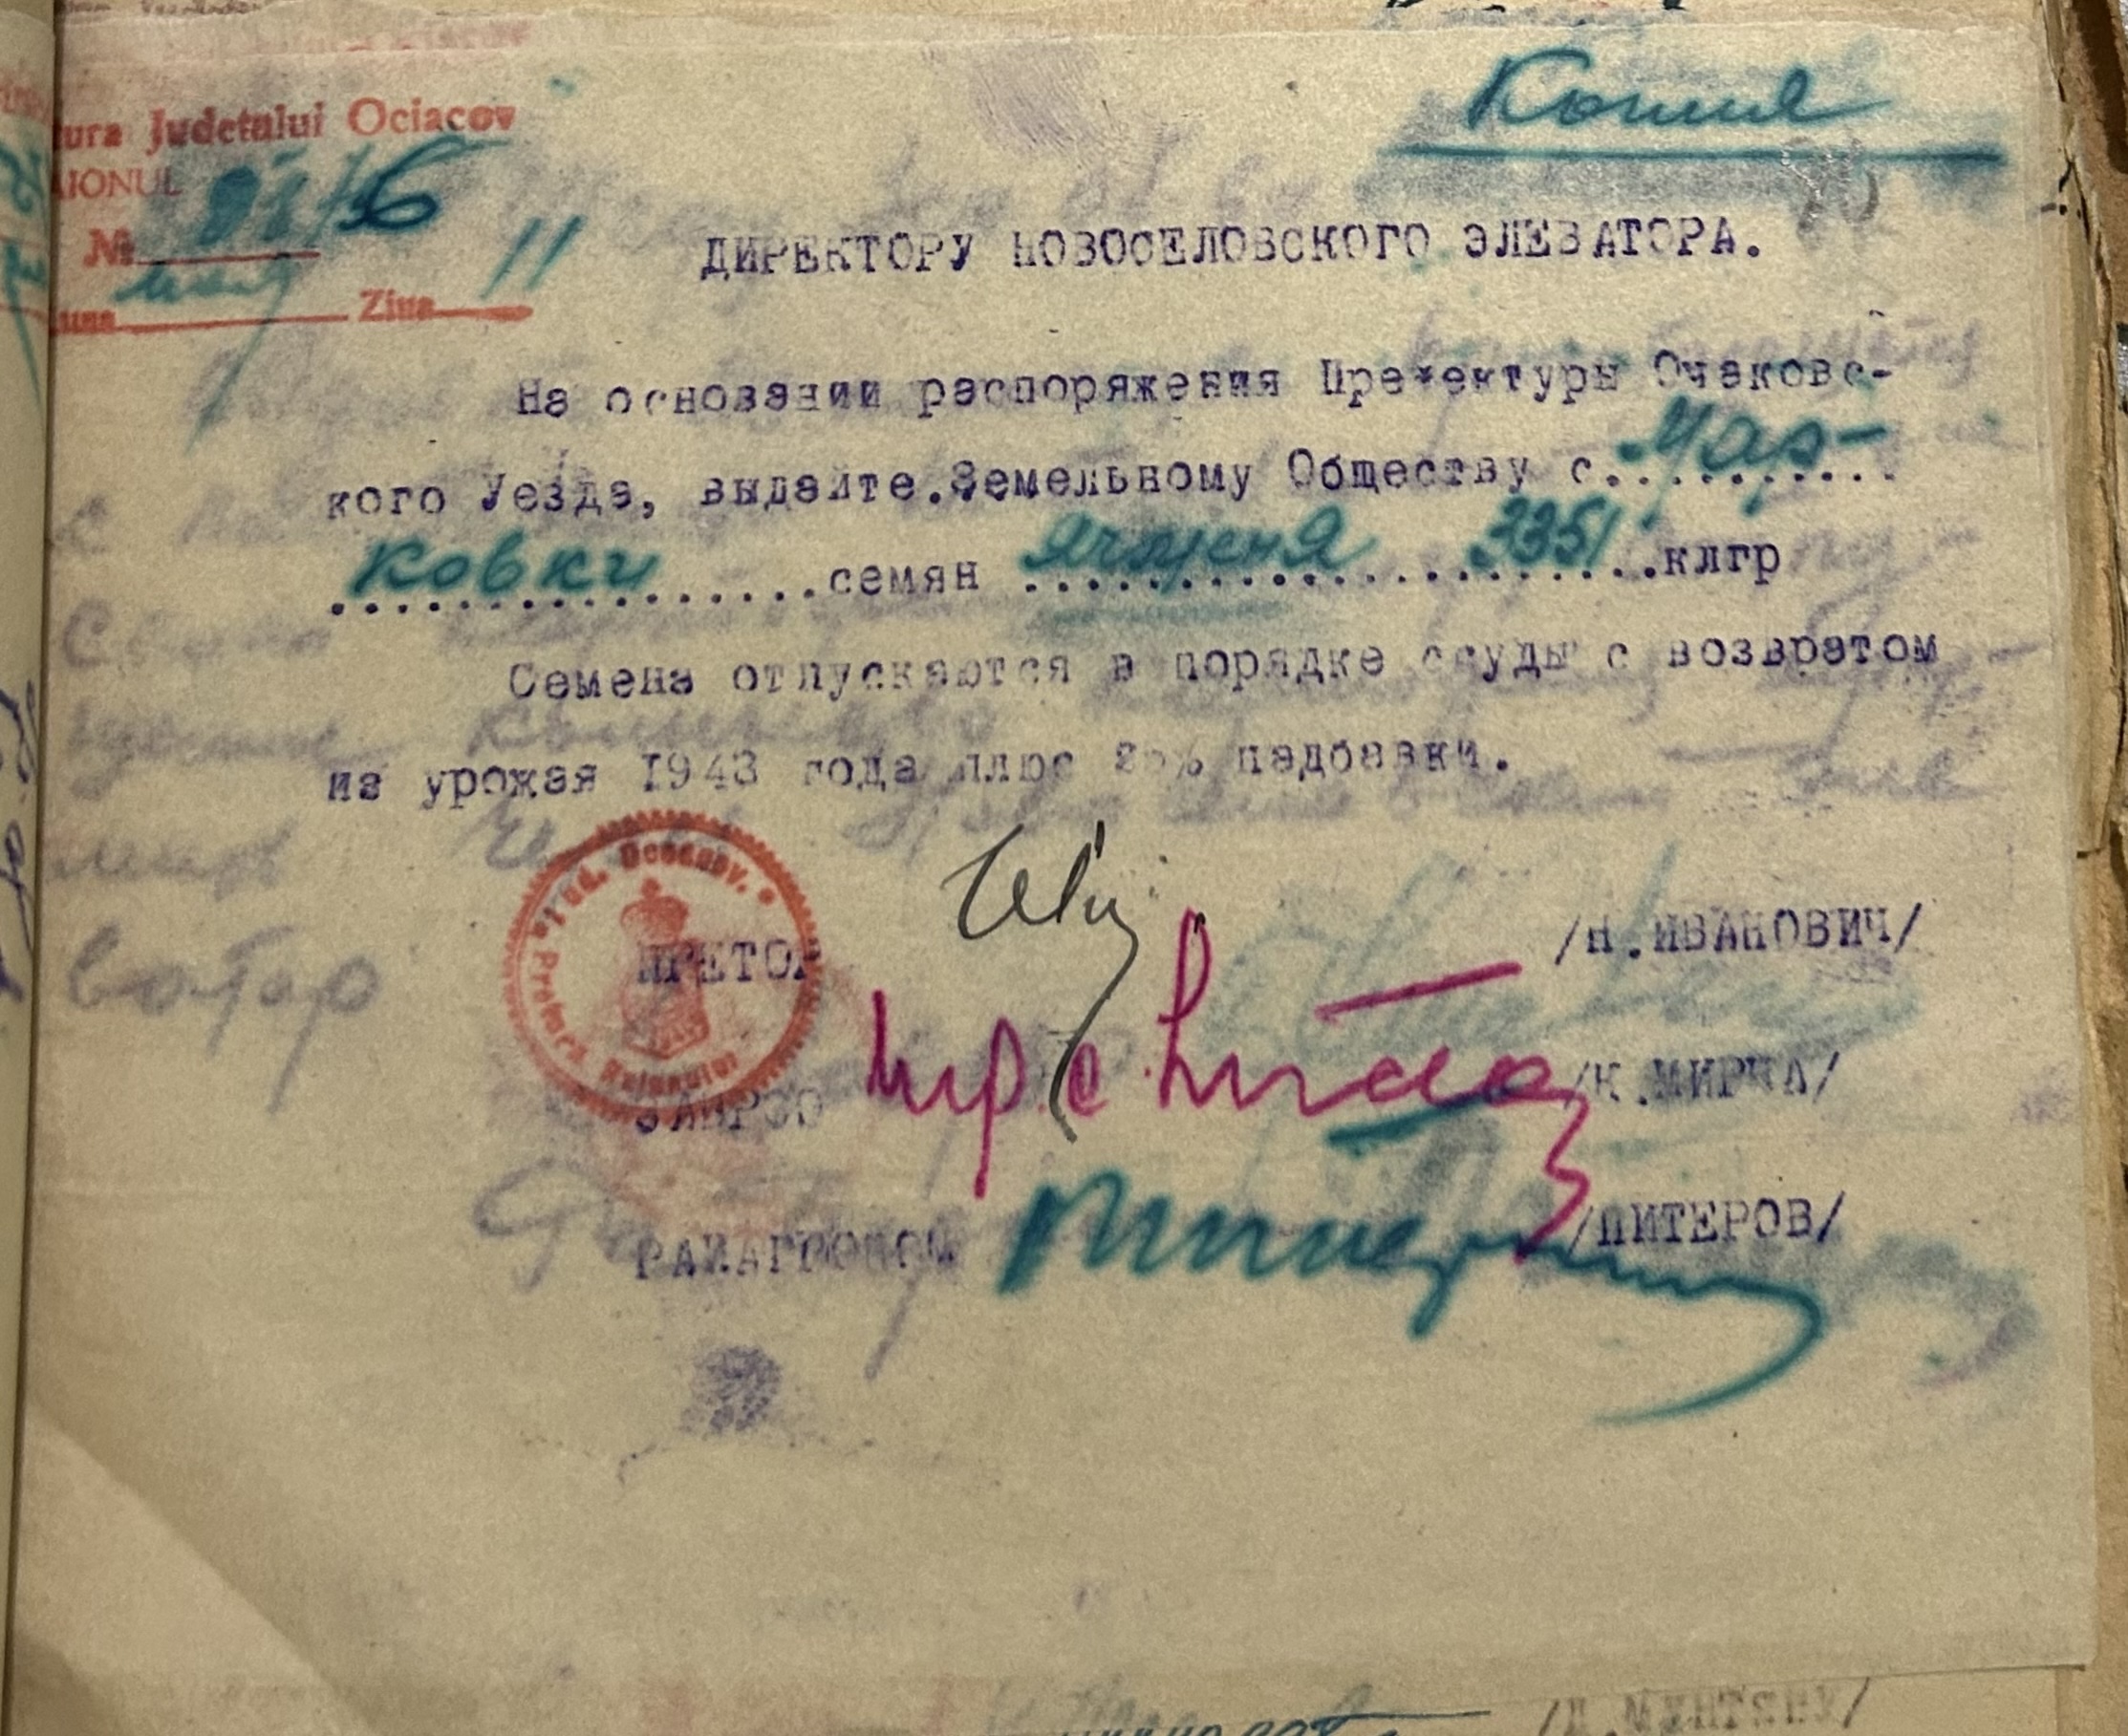 Копия
tura Judetului Ociacov
AIONUL
№ 6
мая Ziua 11
ДИРЕКТОРУ НОВОСЕЛОВСКОГО ЭЛЕВАТОРА.
На основании распоряжения Префектуры Очаковс-
кого Уезда, выдайте.Земельному Обществу с. Мар-
ковки семян ячменя 3351 клгр
Семена отпускаются в порядке ссуды с возвратом
из урожая 1943 года плюс надбавки.
Jud. Oceacov. Pretura Raionului
ПРЕТОР /Н.ИВАНОВИЧ/
/К.МИРЧА/
РАЙАГРОНОМ /ПИТЕРОВ/